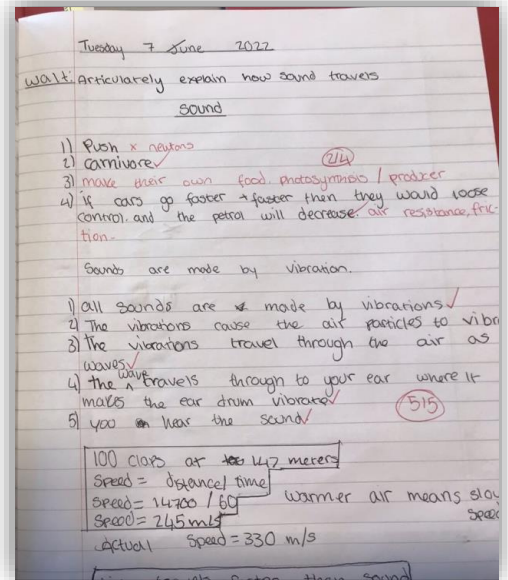 Tuesday 7 June 2022
walt: Articularely explain how sound travels
sound
1) Push x newtons
2) carnivore ✓
2/4
3) make their own food. photosynthesis / producer
4) if cars go faster + faster then they would loose
control. and the petrol will decrease. air resistance, fric-
tion.
Sounds are made by vibration.
1) all sounds are made by vibrations ✓
2) The vibrations cause the air particles to vibr
3) The vibrations travel through the air as
waves ✓
4) the wave travels through to your ear where it
makes the ear drum vibrate ✓
5/5
5) you hear the sound ✓
100 claps at 147 meters
Speed = distance / time
Speed = 14700 / 60
Speed = 245 m/s
warmer air means slow
Speed
Actual Speed = 330 m/s